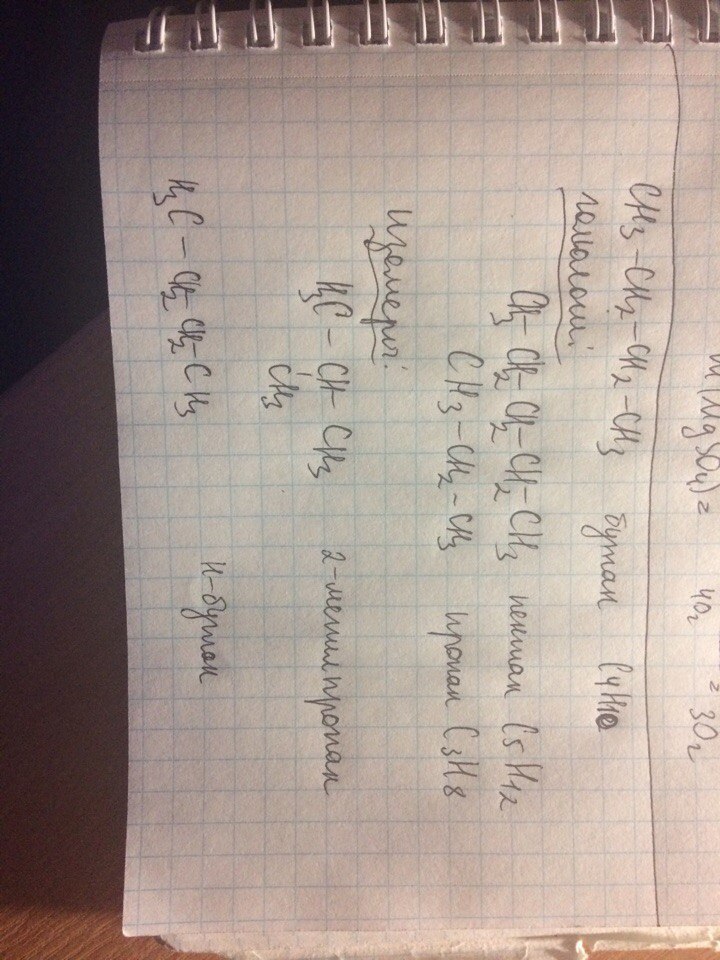 m(MgSO4) = 40г = 30г
CH3-CH2-CH2-CH3 бутан C4H10
гомологи:
CH3-CH2-CH2-CH2-CH3 пентан C5H12
CH3-CH2-CH3 пропан C3H8
изомеры:
H3C-CH-CH3 2-метилпропан
CH3
H3C-CH2-CH2-CH3 н-бутан